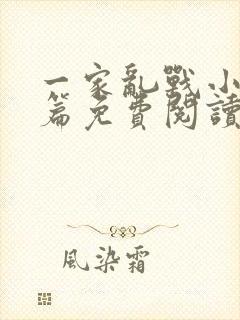 一家亂戰小
篇免費閱讀
風染霜